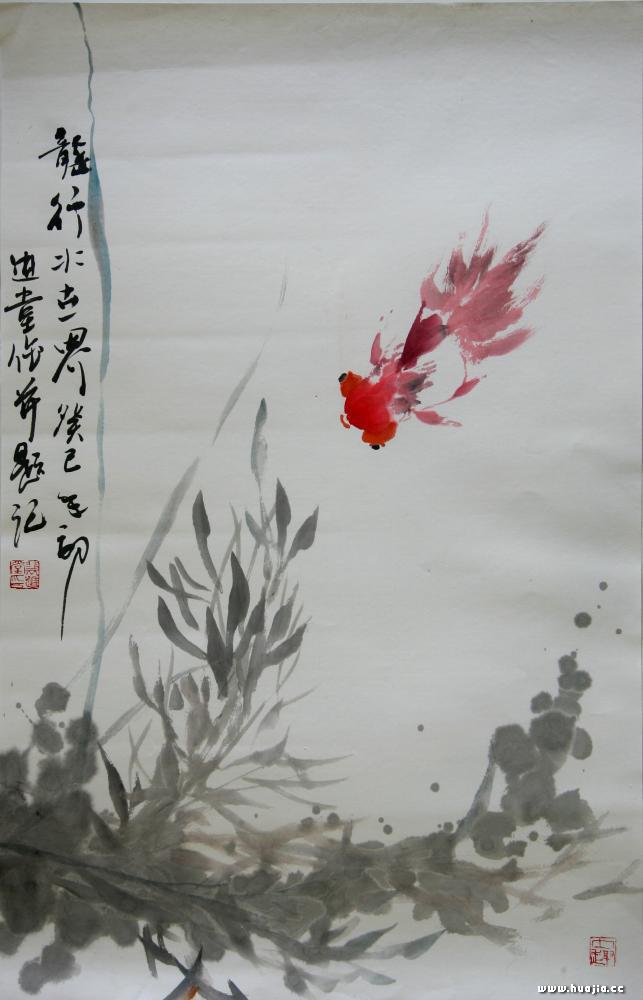 龍行水世界癸巳年初
作并題記
www.huajia.cc